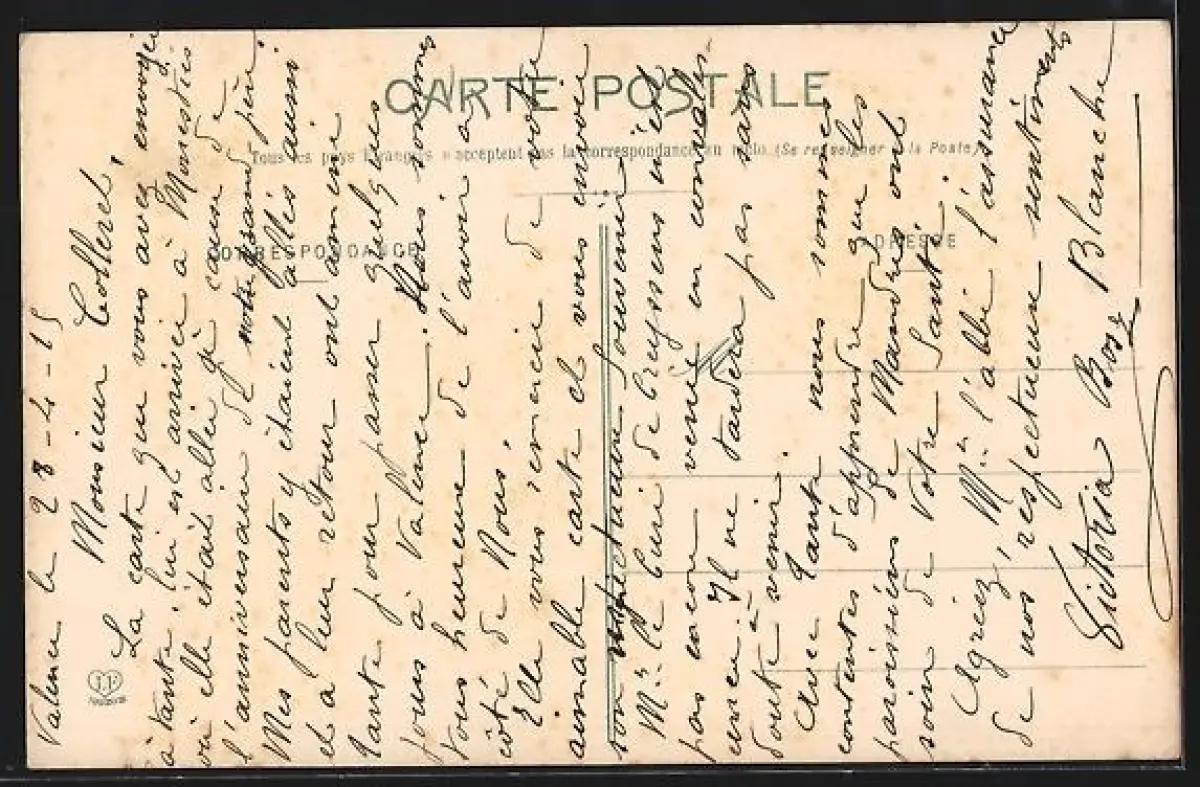 CARTE POSTALE
Tous les pays étrangers n'acceptent pas la correspondance au recto (Se renseigner à la Poste)
CORRESPONDANCE
ADRESSE
Valence le 28-4-15
Monsieur Colleret,
La carte que vous avez envoyée
à tante, lui est arrivée à
où elle était aller à cause de
l'anniversaire de notre grand père.
Mes parents y étaient allés aussi
et à leur retour ont amené
tante pour passer quelques
jours à Valence. Nous sommes
tous heureux de l'avoir à
côté de nous.
Elle vous remercie de votre
aimable carte et vous envoie
son respectueux souvenir
Mr le Curé de n'est
pas encore venu en
encore. Il ne tardera pas sans
doute à venir.
Avec tante nous sommes
contentes d'apprendre que les
paroissiens de Mandres ont
soin de votre santé.
Agréez, Mr l'abbé l'assurance
de nos respectueux sentiments
Victoria Blanche